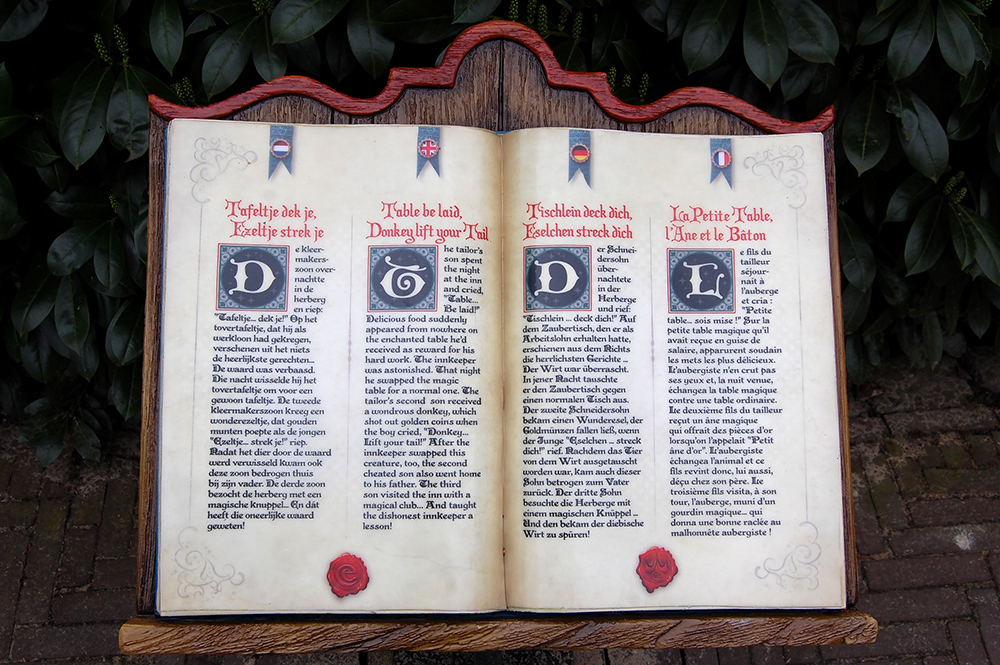 Tafeltje dek je,
Ezeltje strek je
De kleer-
makers-
zoon over-
nachtte
in de
herberg
en riep:
"Tafeltje... dek je!" Op het
tovertafeltje, dat hij als
werkloon had gekregen,
verschenen uit het niets
de heerlijkste gerechten...
De waard was verbaasd.
Die nacht wisselde hij het
tovertafeltje om voor een
gewoon tafeltje. De tweede
kleermakerszoon kreeg een
wonderezeltje, dat gouden
munten poepte als de jongen
"Ezeltje... strek je!" riep.
Nadat het dier door de waard
werd verwisseld kwam ook
deze zoon bedrogen thuis
bij zijn vader. De derde zoon
bezocht de herberg met een
magische knuppel... En dát
heeft die oneerlijke waard
geweten!
Table be laid,
Donkey lift your Tail
The tailor's
son spent
the night
at the inn
and cried,
"Table...
Be laid!"
Delicious food suddenly
appeared from nowhere on
the enchanted table he'd
received as reward for his
hard work. The innkeeper
was astonished. That night
he swapped the magic
table for a normal one. The
tailor's second son received
a wondrous donkey, which
shot out golden coins when
the boy cried, "Donkey...
Lift your tail!" After the
innkeeper swapped this
creature, too, the second
cheated son also went home
to his father. The third
son visited the inn with a
magical club... And taught
the dishonest innkeeper a
lesson!
Tischlein deck dich,
Eselchen streck dich
Der Schnei-
dersohn
über-
nachtete
in der
Herberge
und rief:
"Tischlein ... deck dich!" Auf
dem Zaubertisch, den er als
Arbeitslohn erhalten hatte,
erschienen aus dem Nichts
die herrlichsten Gerichte ...
Der Wirt war überrascht.
In jener Nacht tauschte
er den Zaubertisch gegen
einen normalen Tisch aus.
Der zweite Schneidersohn
bekam einen Wunderesel, der
Goldmünzen fallen ließ, wenn
der Junge "Eselchen ... streck
dich!" rief. Nachdem das Tier
von dem Wirt ausgetauscht
worden war, kam auch dieser
Sohn betrogen zum Vater
zurück. Der dritte Sohn
besuchte die Herberge mit
einem magischen Knüppel ...
Und den bekam der diebische
Wirt zu spüren!
La Petite Table,
l'Âne et le Bâton
Le fils du
tailleur
séjour-
nait à
l'auberge
et cria :
"Petite
table... sois mise !" Sur la
petite table magique qu'il
avait reçue en guise de
salaire, apparurent soudain
les mets les plus délicieux.
L'aubergiste n'en crut pas
ses yeux et, la nuit venue,
échangea la table magique
contre une table ordinaire.
Le deuxième fils du tailleur
reçut un âne magique
qui offrait des pièces d'or
lorsqu'on l'appelait "Petit
âne d'or". L'aubergiste
échangea l'animal et ce
fils revint donc, lui aussi,
déçu chez son père. Le
troisième fils visita, à son
tour, l'auberge, muni d'un
gourdin magique... qui
donna une bonne raclée au
malhonnête aubergiste !